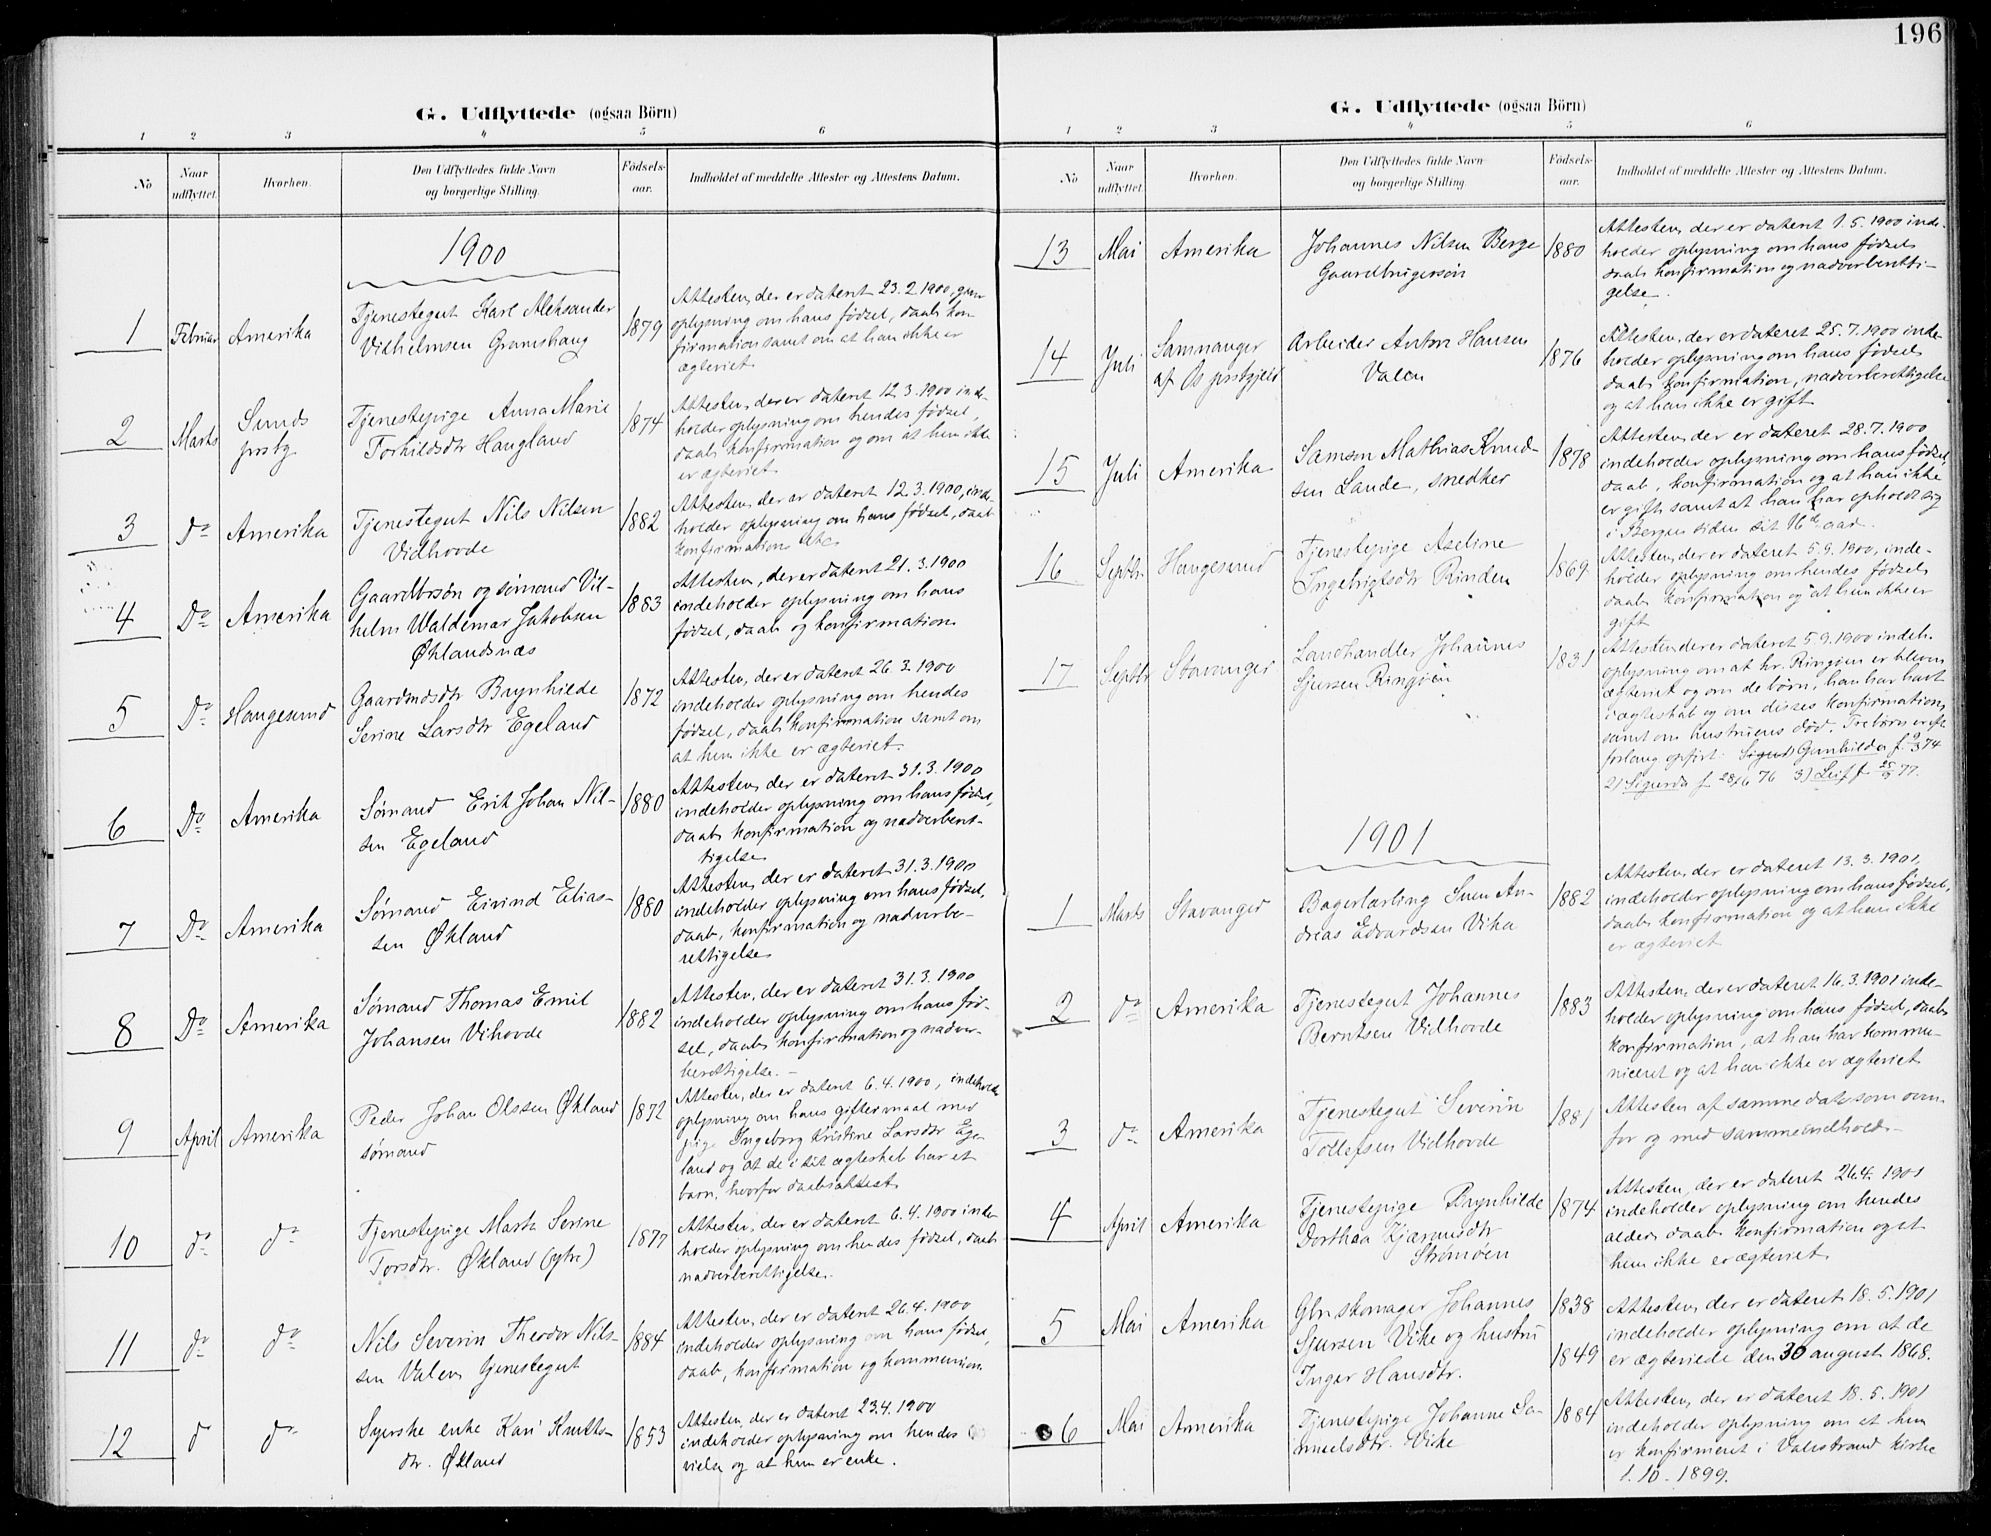 196
G. Udflyttede (ogsaa Börn)
1 2 3 4 5 6
No
Naar udflyttet.
Hvorhen.
Den Udflyttedes fulde Navn og borgerlige Stilling.
Fødsels-aar.
Indholdet af meddelte Attester og Attestens Datum.
1900
1 Februar Amerika
Tjenestegut Karl Aleksander
Vilhelmsen Gramshaug
1879
Attesten, der er dateret 23.2.1900,
oplysning om hans fødsel, daab kon-
firmation samt om at han ikke er
ægteviet
2 Marts Sunds
prstg
Tjenestepige Anna Marie
Torkildsdtr Haugland
1874
Attesten, der er dateret 12.3.1900 inde-
holder oplysning om hendes fødsel,
daab konfirmation og om at hun ikke
er ægteviet
3 do Amerika
Tjenestegut Nils Nilsen
Vidhovde
1882
Attesten, der er dateret 12.3.1900, inde-
holder oplysning om hans fødsel, daab
konfirmation etc
4 Do Amerika
Gaardbrsøn og sømand Vil-
helm Waldemar Jakobsen
Øklandsnæs
1883
Attesten, der er dateret 21.3.1900
indeholder oplysning om hans
fødsel, daab og konfirmation
5 Do Haugesund
Gaardmdsdtr Brynhilde
Serine Larsdtr Egeland
1872
Attesten, der er dateret 26.3.1900
indeholder oplysning om hendes
fødsel, daab konfirmation samt om
at hun ikke er ægteviet.
6 Do Amerika
Sømand Erik Johan Nil-
sen Egeland
1880
Attesten, der er dateret 31.3.1900
indeholder oplysning om hans fødsel,
daab konfirmation og nadverberet-
tigelse
7 Do Amerika
Sømand Eivind Elias-
sen Økland
1880
Attesten, der er dateret 31.3.1900
indeholder oplysning om hans fødsel,
daab, konfirmation og nadverbe-
rettigelse
8 Do Amerika
Sømand Thomas Emil
Johansen Vihovde
1882
Attesten, der er dateret 31.3.1900
indeholder oplysning om hans fød-
sel, daab konfirmation og nadver-
berettigelse. -
9 April Amerika
Peder Johan Olssen Økland
sømand
1872
Attesten, der er dateret 6.4.1900, indeholder
oplysning om hans giftermaal med
pige Ingeborg Kristine Larsdtr Ege-
land og at de i sit ægteskab har et
barn, hvorfor daabsattest
10 do do
Tjenestepige Marta Serine
Torsdtr. Økland (ytre)
1877
Attesten, der er dateret 6.4.1900 inde
holder oplysning om hendes fødsel, daab
nadverberettigelse.
11 do do
Nils Severin Theodor Nils-
sen Valen tjenestegut
1884
Attesten, der er dateret 26.4.1900
indeholder oplysning om hans fødsel,
daab, konfirmation og kommunion
12 d do
Syerske enke Kari Knuts-
dtr. Økland
1853
Attesten, der er dateret 23.4.1900
indeholder oplysning om hendes
vielse og at hun er enke.
G. Udflyttede (ogsaa Börn)
1 2 3 4 5 6
No
Naar udflyttet.
Hvorhen.
Den Udflyttedes fulde Navn og borgerlige Stilling.
Fødsels-aar.
Indholdet af meddelte Attester og Attestens Datum.
13 Mai Amerika
Johannes Nilsen Berge
Gaardbrugersøn
1880
Attesten, der er dateret 1.5.1900 inde-
holder oplysning om hans fødsel
daab konfirmation og nadverberetti-
gelse.
14 Juli Samnanger
af Os prstgjeld
Arbeider Anton Hansen
Valen
1876
Attesten, der er dateret 25.7.1900 inde-
holder oplysning om hans fødsel
daab konfirmation, nadverberettigelse
og at han ikke er gift
15 Juli Amerika
Samson Mathias Knud-
sen Lande, snedker
1878
Attesten, der er dateret 28.7.1900
indeholder oplysning om hans fødsel,
daab, konfirmation og at han ikke
er gift samt at han har opholdt sig
i Bergen siden sit 16de aar.
16 Septbr Haugesund
Tjenestepige Aseline
Ingebrigtsdtr Rinden
1869
Attesten, der er dateret 5.9.1900, inde-
holder oplysning om hendes fødsel
daab konfirmation og at hun ikke er
gift
17 Septbr Stavanger
Landhandler Johannes
Sjursen Ringøen
1831
Attesten der er dateret 5.9.1900 indeh.
oplysning om at hr. Ringøen er bleven
og om de børn, han har havt
i ægteskab og om disses konfirmation
samt om hustruens død. Tre børn er
forlang opført: Gunhilda f. 9/3 74
2) Sigurda f 28/6 76 3) Leif f 25/9 77.
1901
1 Marts Stavanger
Bagerlærling Sven An-
dreas Edvardsen Vika
1882
Attesten, der er dateret 13.3.1901,
indeholder oplysning om hans fødsel,
daab konfirmation og at han ikke
er ægteviet
2 do Amerika
Tjenestegut Johannes
Berntsen Vidhovde
1883
Attesten, der er dateret 16.3.1901 inde-
holder oplysning om hans fødsel, daab
konfirmation, at han har kommu-
niceret og at han ikke er ægteviet
3 do Amerika
Tjenestegut Severin
Tollefsen Vidhovde
1881
Attesten af samme dato som oven-
for og med samme indhold. -
4 April Amerika
Tjenestepige Brynhilde
Dorthea Kjærandsdtr
Strømøen
1874
Attesten, der er dateret 26.4.1901
indeholder oplysning om hendes
alder daab konfirmation og at
hun ikke er ægteviet.
5 Mai Amerika
Gbr skomager Johannes
Sjursen Vike og hustru
Inger Hansdtr.
1838
1849
Attesten, der er dateret 18.5.1901
indeholder oplysning om at de
er ægteviede den 30 august 1868.
6 Mai Amerika
Tjenestepige Johanne Sa-
muelsdtr. Vike
1884
Attesten, der er dateret 18.5.1901
indeholder oplysning om at hun
er konfirmeret i Valestrand kirke
1.10.1899.